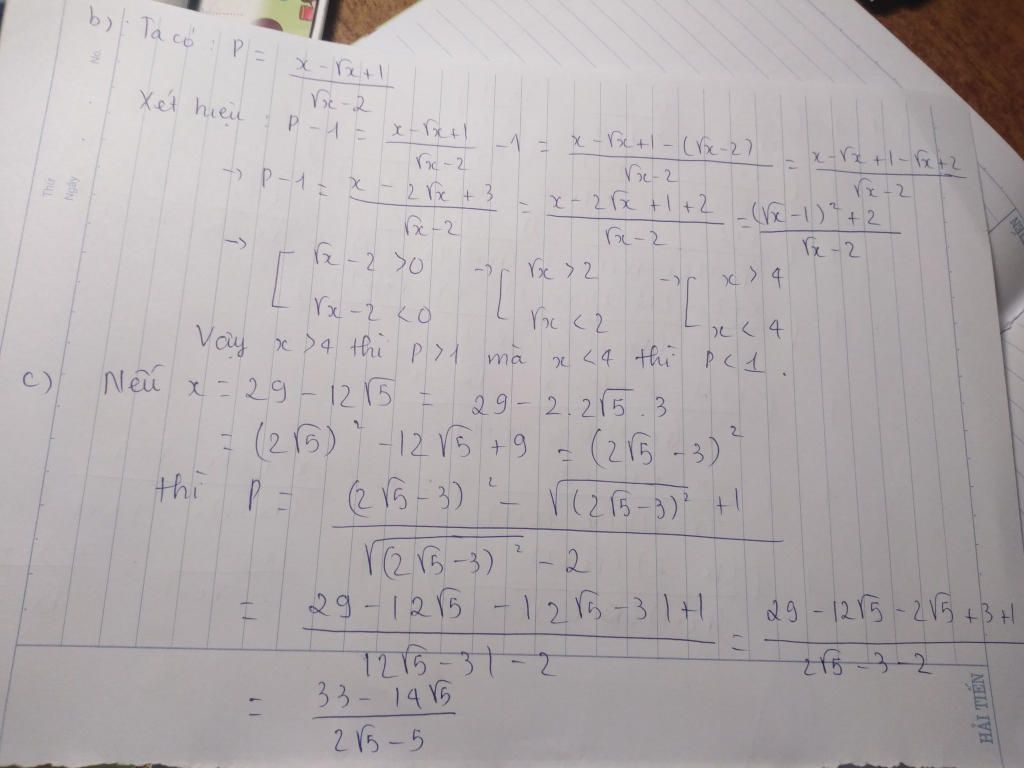 b) Ta có : P = \frac{x - \sqrt{x} + 1}{\sqrt{x} - 2}
Xét hiệu : P - 1 = \frac{x - \sqrt{x} + 1}{\sqrt{x} - 2} - 1 = \frac{x - \sqrt{x} + 1 - (\sqrt{x} - 2)}{\sqrt{x} - 2} = \frac{x - \sqrt{x} + 1 - \sqrt{x} + 2}{\sqrt{x} - 2}
→ P - 1 = \frac{x - 2\sqrt{x} + 3}{\sqrt{x} - 2} = \frac{x - 2\sqrt{x} + 1 + 2}{\sqrt{x} - 2} = \frac{(\sqrt{x} - 1)^2 + 2}{\sqrt{x} - 2}
→ [ \sqrt{x} - 2 > 0 → [ \sqrt{x} > 2 → [ x > 4
\sqrt{x} - 2 < 0 \sqrt{x} < 2 x < 4
Vậy x > 4 thì P > 1 mà x < 4 thì P < 1 .
c) Nếu x = 29 - 12\sqrt{5} = 29 - 2.2\sqrt{5}.3
= (2\sqrt{5})^2 - 12\sqrt{5} + 9 = (2\sqrt{5} - 3)^2
thì P = \frac{(2\sqrt{5} - 3)^2 - \sqrt{(2\sqrt{5} - 3)^2} + 1}{\sqrt{(2\sqrt{5} - 3)^2} - 2}
= \frac{29 - 12\sqrt{5} - |2\sqrt{5} - 3| + 1}{|2\sqrt{5} - 3| - 2} = \frac{29 - 12\sqrt{5} - 2\sqrt{5} + 3 + 1}{2\sqrt{5} - 3 - 2}
= \frac{33 - 14\sqrt{5}}{2\sqrt{5} - 5}
No.
Thứ
Ngày
HẢI TIẾN